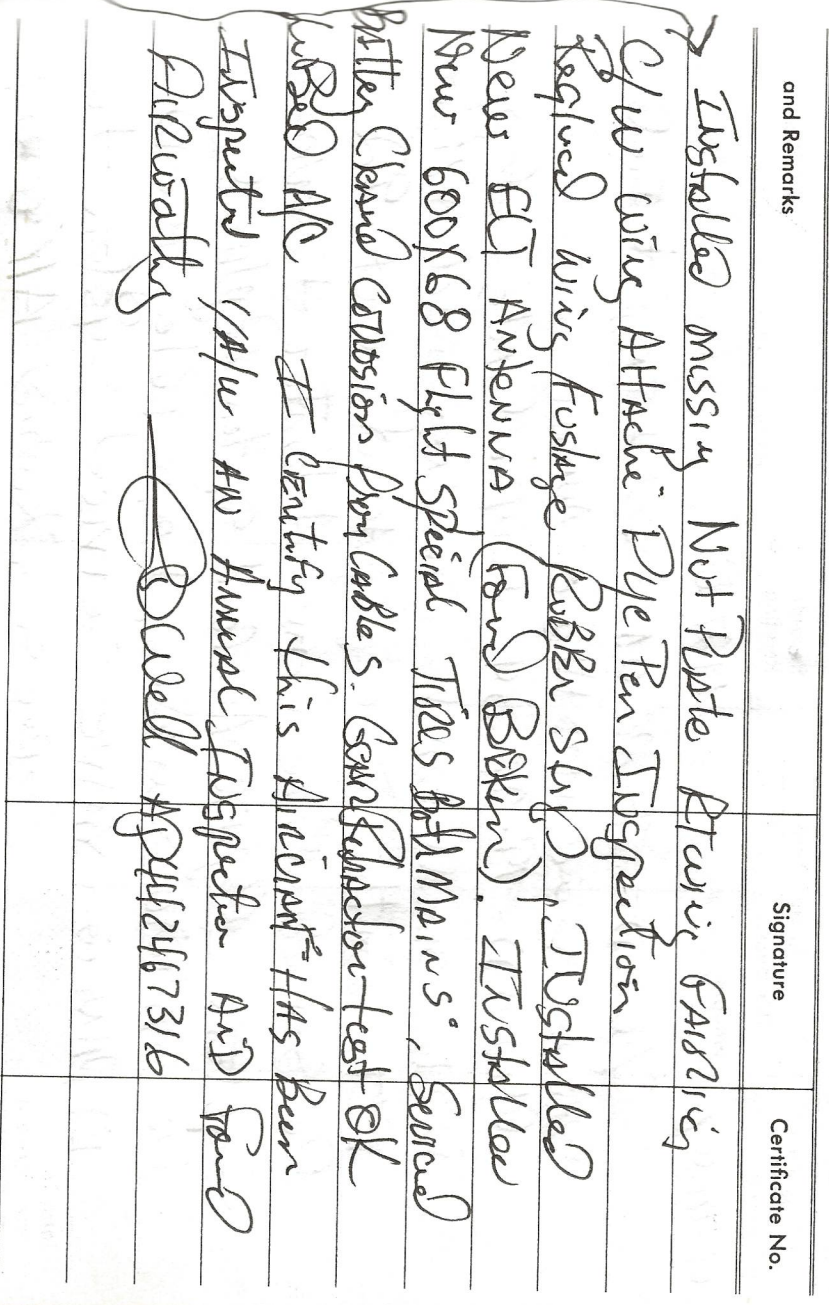 and Remarks Signature Certificate No.
Installed missing Nut Plate Rt wing FAIRING
C/W wing Attach Dye Pen Inspection
Reglued wing Fuslage Rubber Strip, Installed
New ELT ANTENNA (Found Broken), Installed
New 600x6 8 Flight Special Tires Both MAINS, Serviced
Battery Cleaned Corrosion from Cables. Gear Retraction test OK
LUBED A/C I CERTIFY this Aircraft HAS Been
Inspected I/A/W AN Annual Inspection AND Found
AIRworthy